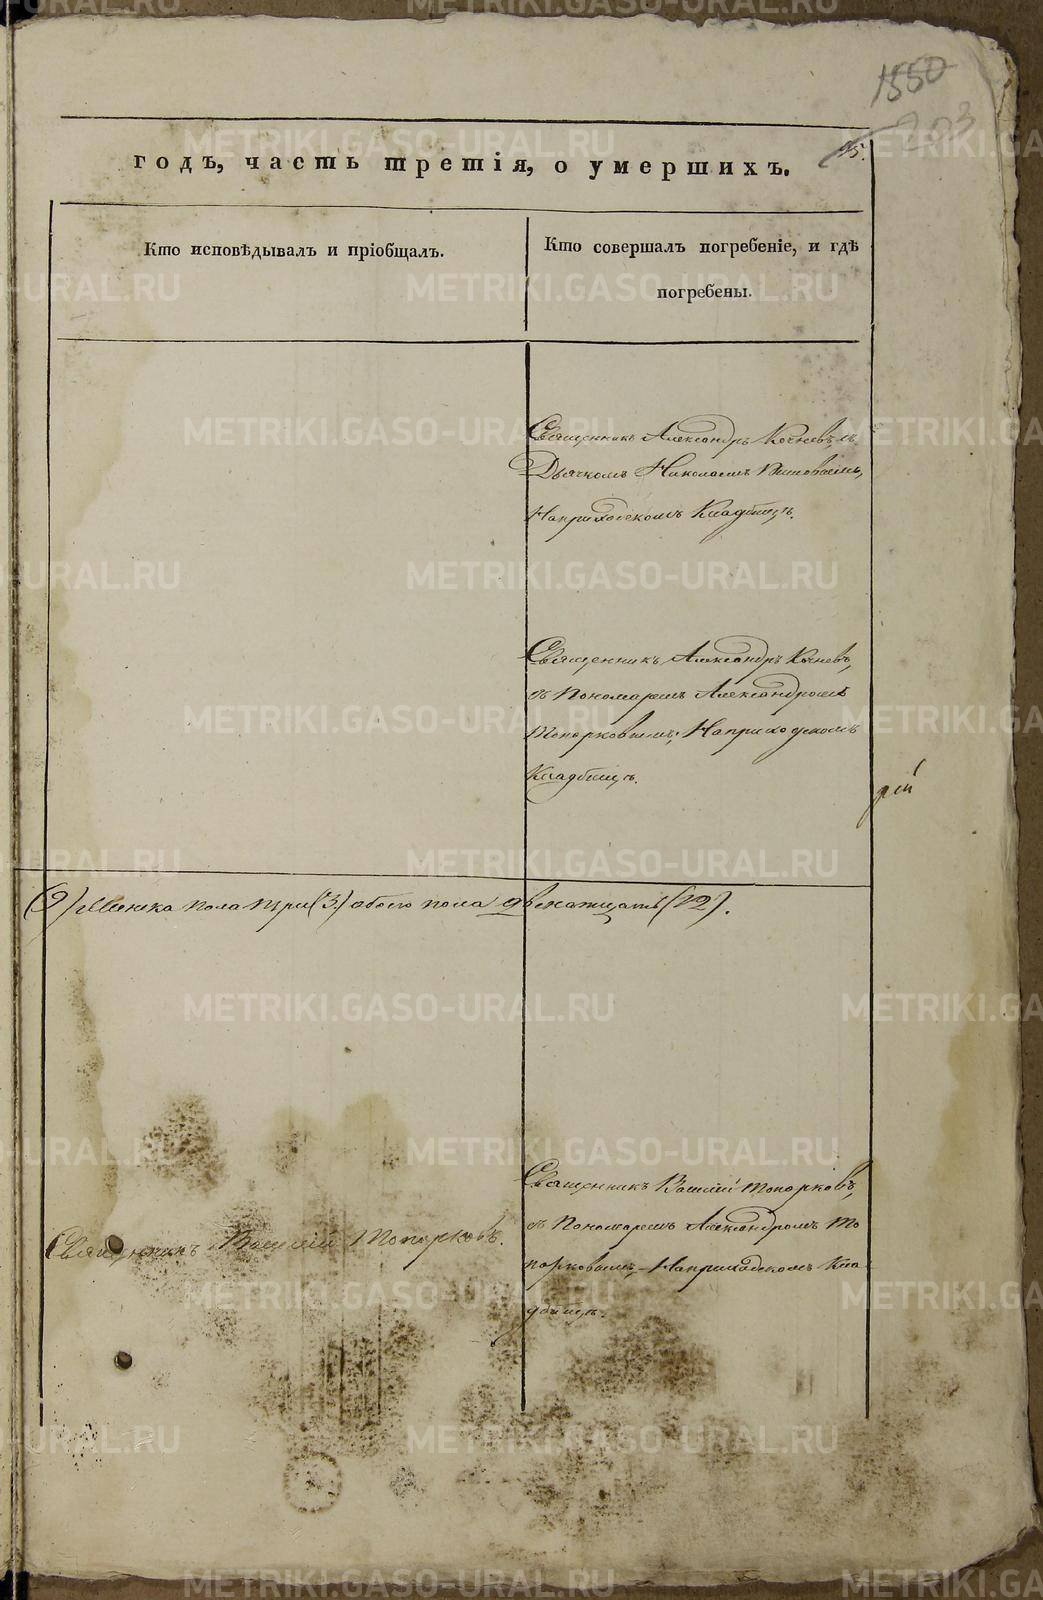 1550
203
годъ, часть третія, о умершихъ.
Кто исповѣдывалъ и пріобщалъ.
Кто совершалъ погребеніе, и гдѣ
погребены.
Священникъ Александръ Кочневъ, съ
Дьячкомъ Николаемъ
На приходскомъ Кладбищѣ.
Священникъ Александръ Кочневъ,
съ Пономаремъ Александромъ
Топорковымъ; На приходскомъ
Кладбищѣ.
(9) Женска пола три (3.) обоего пола двенатцать (12).
Священникъ Василій Топорковъ,
съ Пономаремъ Александромъ То
порковымъ, На приходскомъ Кла
дбищѣ.
Священникъ Василій Топорковъ.
METRIKI.GASO-URAL.RU